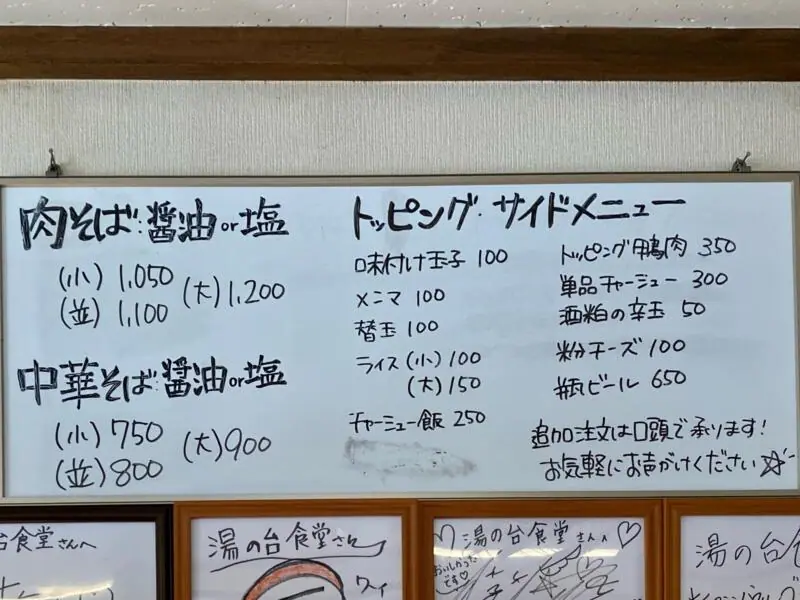 肉そば:醤油or塩
(小) 1,050
(並) 1,100
(大) 1,200
中華そば:醤油or塩
(小) 750
(並) 800
(大) 900
トッピング・サイドメニュー
味付け玉子 100
メンマ 100
替玉 100
ライス (小) 100
(大) 150
チャーシュー飯 250
トッピング鴨肉 350
単品チャーシュー 300
酒粕の辛玉 50
粉チーズ 100
瓶ビール 650
追加注文は口頭で承ります!
お気軽にお声がけください☆
台食堂さんへ
湯の台食堂さん
ワイ
♡湯の台食堂さんへ♡
おいしかった
です♡
湯の台食